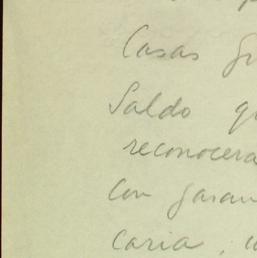 Casas
Saldo
reconocera
con garan
caria,